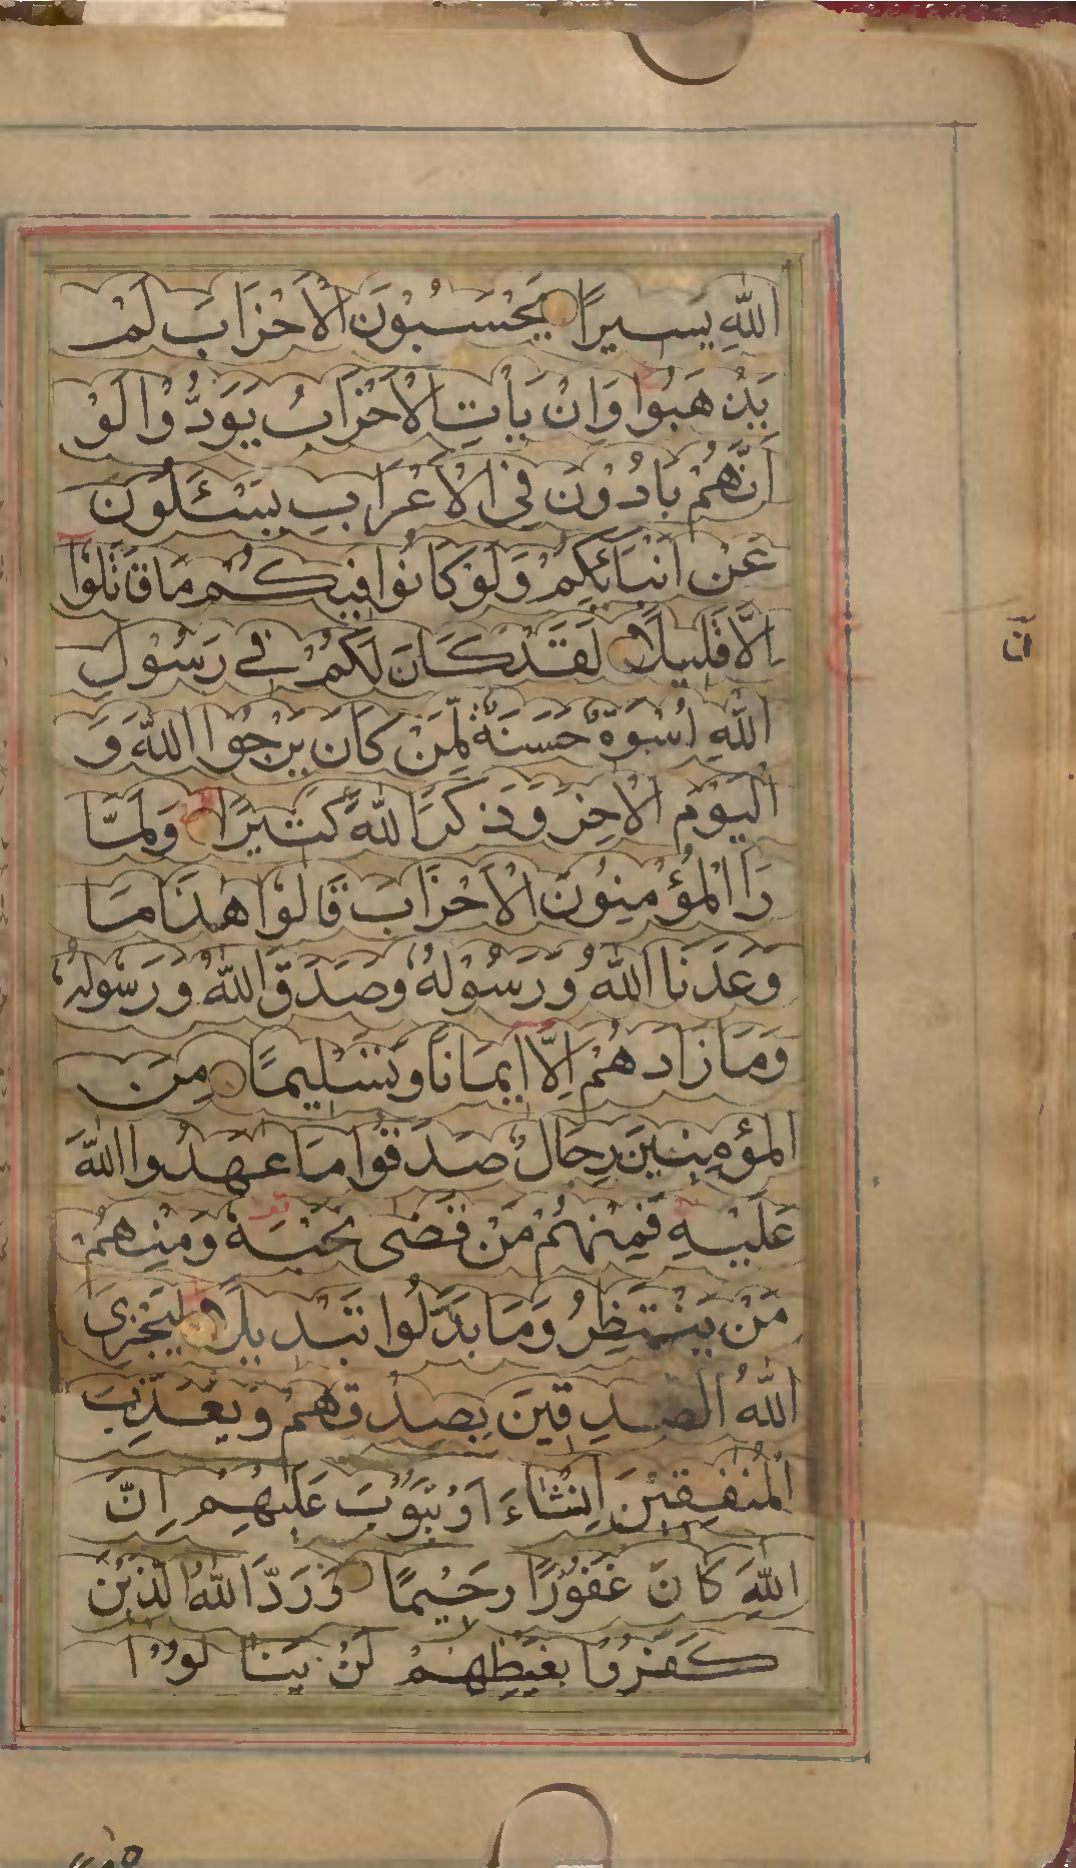 اللّٰهِ يَسِيرًا يَحْسَبُوْنَ الْاَحْزَابَ لَمْ
يَذْهَبُوا وَاِنْ يَأْتِ الْاَحْزَابُ يَوَدُّوْا لَوْ
اَنَّهُمْ بَادُوْنَ فِي الْاَعْرَابِ يَسْئَلُوْنَ
عَنْ اَنْبَائِكُمْ وَلَوْ كَانُوا فِيكُمْ مَا قَاتَلُوْا
اِلَّا قَلِيلًا لَقَدْ كَانَ لَكُمْ فِي رَسُوْلِ
اللّٰهِ اُسْوَةٌ حَسَنَةٌ لِمَنْ كَانَ يَرْجُوا اللّٰهَ وَ
الْيَوْمَ الْاٰخِرَ وَذَكَرَ اللّٰهَ كَثِيرًا وَلَمَّا
رَاَ الْمُؤْمِنُوْنَ الْاَحْزَابَ قَالُوْا هٰذَا مَا
وَعَدَنَا اللّٰهُ وَرَسُوْلُهُ وَصَدَقَ اللّٰهُ وَرَسُوْلُهُ
وَمَا زَادَهُمْ اِلَّا اِيمَانًا وَتَسْلِيمًا مِنَ
الْمُؤْمِنِينَ رِجَالٌ صَدَقُوا مَا عٰهَدُوا اللّٰهَ
عَلَيْهِ فَمِنْهُمْ مَنْ قَضٰى نَحْبَهُ وَمِنْهُمْ
مَنْ يَنْتَظِرُ وَمَا بَدَّلُوا تَبْدِيلًا لِيَجْزِيَ
اللّٰهُ الصّٰدِقِينَ بِصِدْقِهِمْ وَيُعَذِّبَ
الْمُنٰفِقِيْنَ اِنْ شَاءَ اَوْ يَتُوْبَ عَلَيْهِمْ اِنَّ
اللّٰهَ كَانَ غَفُوْرًا رَحِيْمًا وَرَدَّ اللّٰهُ الَّذِيْنَ
كَفَرُوْا بِغَيْظِهِمْ لَنْ يَنَالُوْا